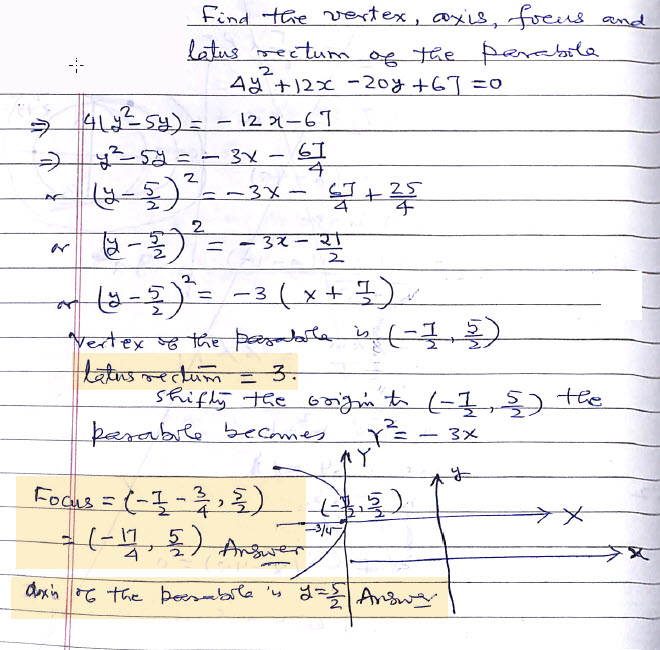 Find the vertex, axis, focus and
latus rectum of the parabola
4y²+12x-20y+67=0
⇒ 4(y²-5y) = -12x-67
⇒ y²-5y = -3x - 67/4
or (y-5/2)² = -3x - 67/4 + 25/4
or (y-5/2)² = -3x - 21/2
or (y-5/2)² = -3(x+7/2)
Vertex of the parabola is (-7/2, 5/2)
latus rectum = 3.
Shifting the origin to (-7/2, 5/2) the
parabola becomes Y² = -3X
Y
y
Focus = (-7/2 - 3/4, 5/2)
(-7/2, 5/2)
-3/4-
X
= (-17/4, 5/2) Answer
x
axis of the parabola is y=5/2 Answer